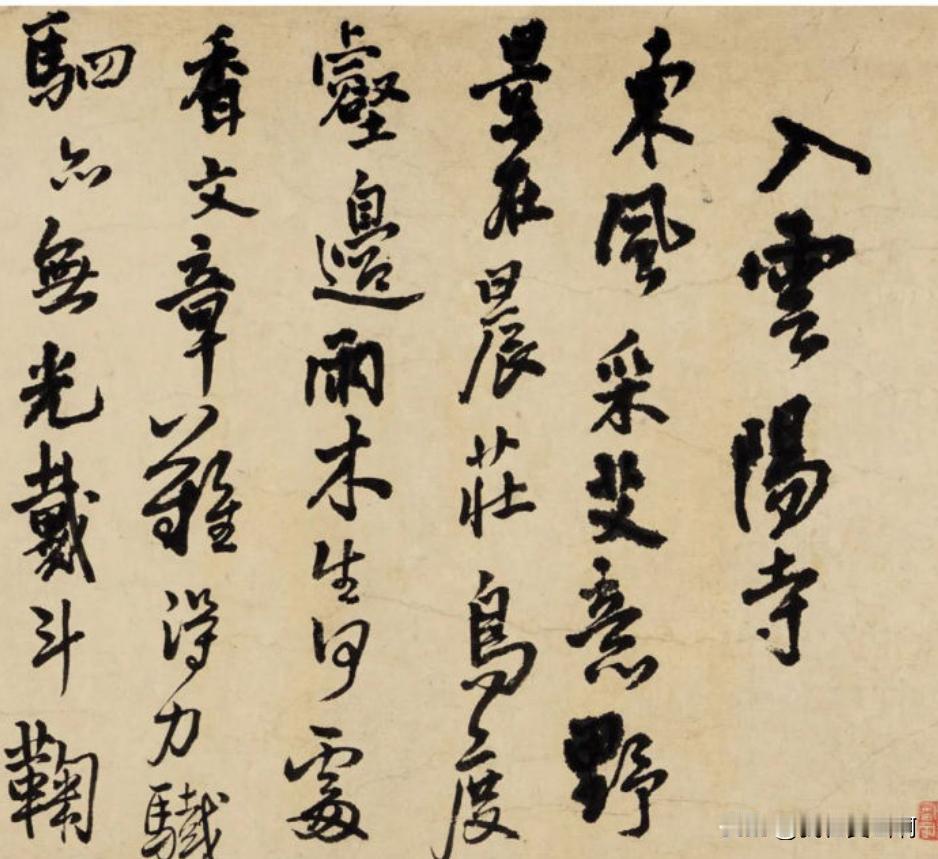 入雲陽寺
東風采艾意野
景在晨莊鳥度
壑邊雨木生何處
香文章難得力驖
駟亦無光戴斗鞠